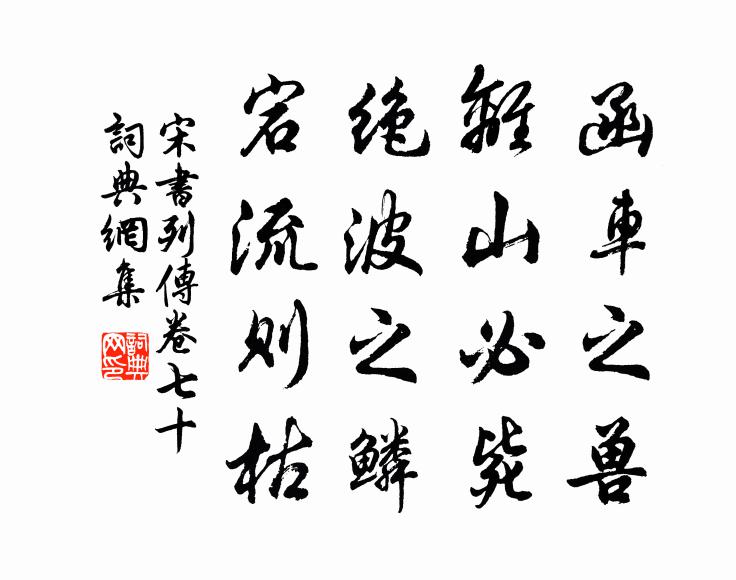 函車之兽
離山必毙
绝波之鳞
宕流则枯
宋書列傳卷七十
詞典網集
詞典
网印